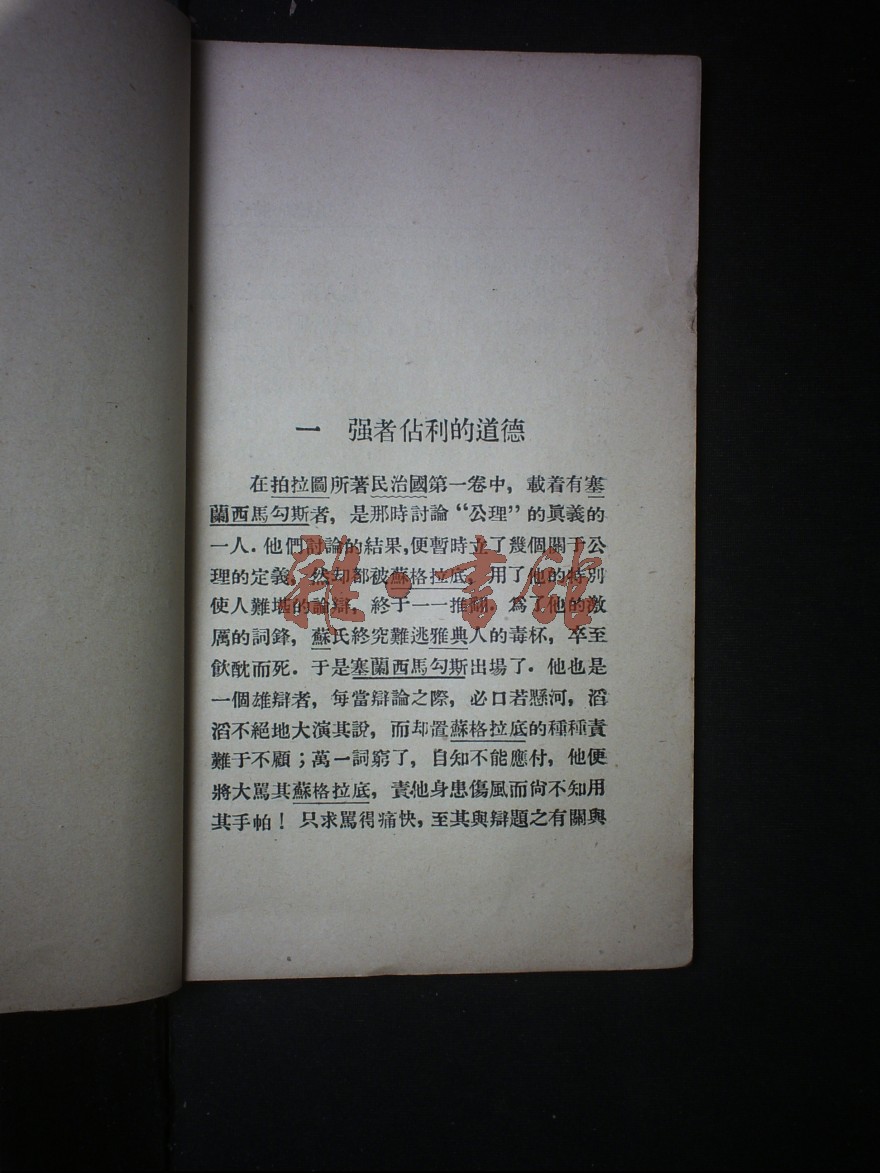 一　强者佔利的道德
在拍拉圖所著民治國第一卷中，載着有塞
蘭西馬勾斯者，是那時討論“公理”的眞義的
一人．他們討論的結果，便暫時立了幾個關于公
理的定義，然却都被蘇格拉底，用了他的特別
使人難堪的論辯，終于一一推翻．爲了他的激
厲的詞鋒，蘇氏終究難逃雅典人的毒杯，卒至
飲酖而死．于是塞蘭西馬勾斯出場了．他也是
一個雄辯者，每當辯論之際，必口若懸河，滔
滔不絕地大演其說，而却置蘇格拉底的種種責
難于不顧；萬一詞窮了，自知不能應付，他便
將大罵其蘇格拉底，責他身患傷風而尙不知用
其手帕！只求罵得痛快，至其與辯題之有關與
雜·書館